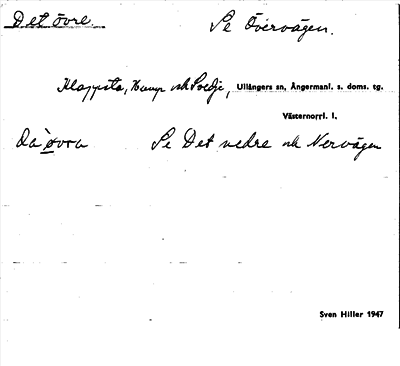 Det övre. Se Övervägen.
Klappsta, Kamp och Svedje, Ullångers sn, Ångermanl. s. doms. tg.
Västernorrl. l.
da`øvra Se Det nedre och Nervägen
Sven Hiller 1947